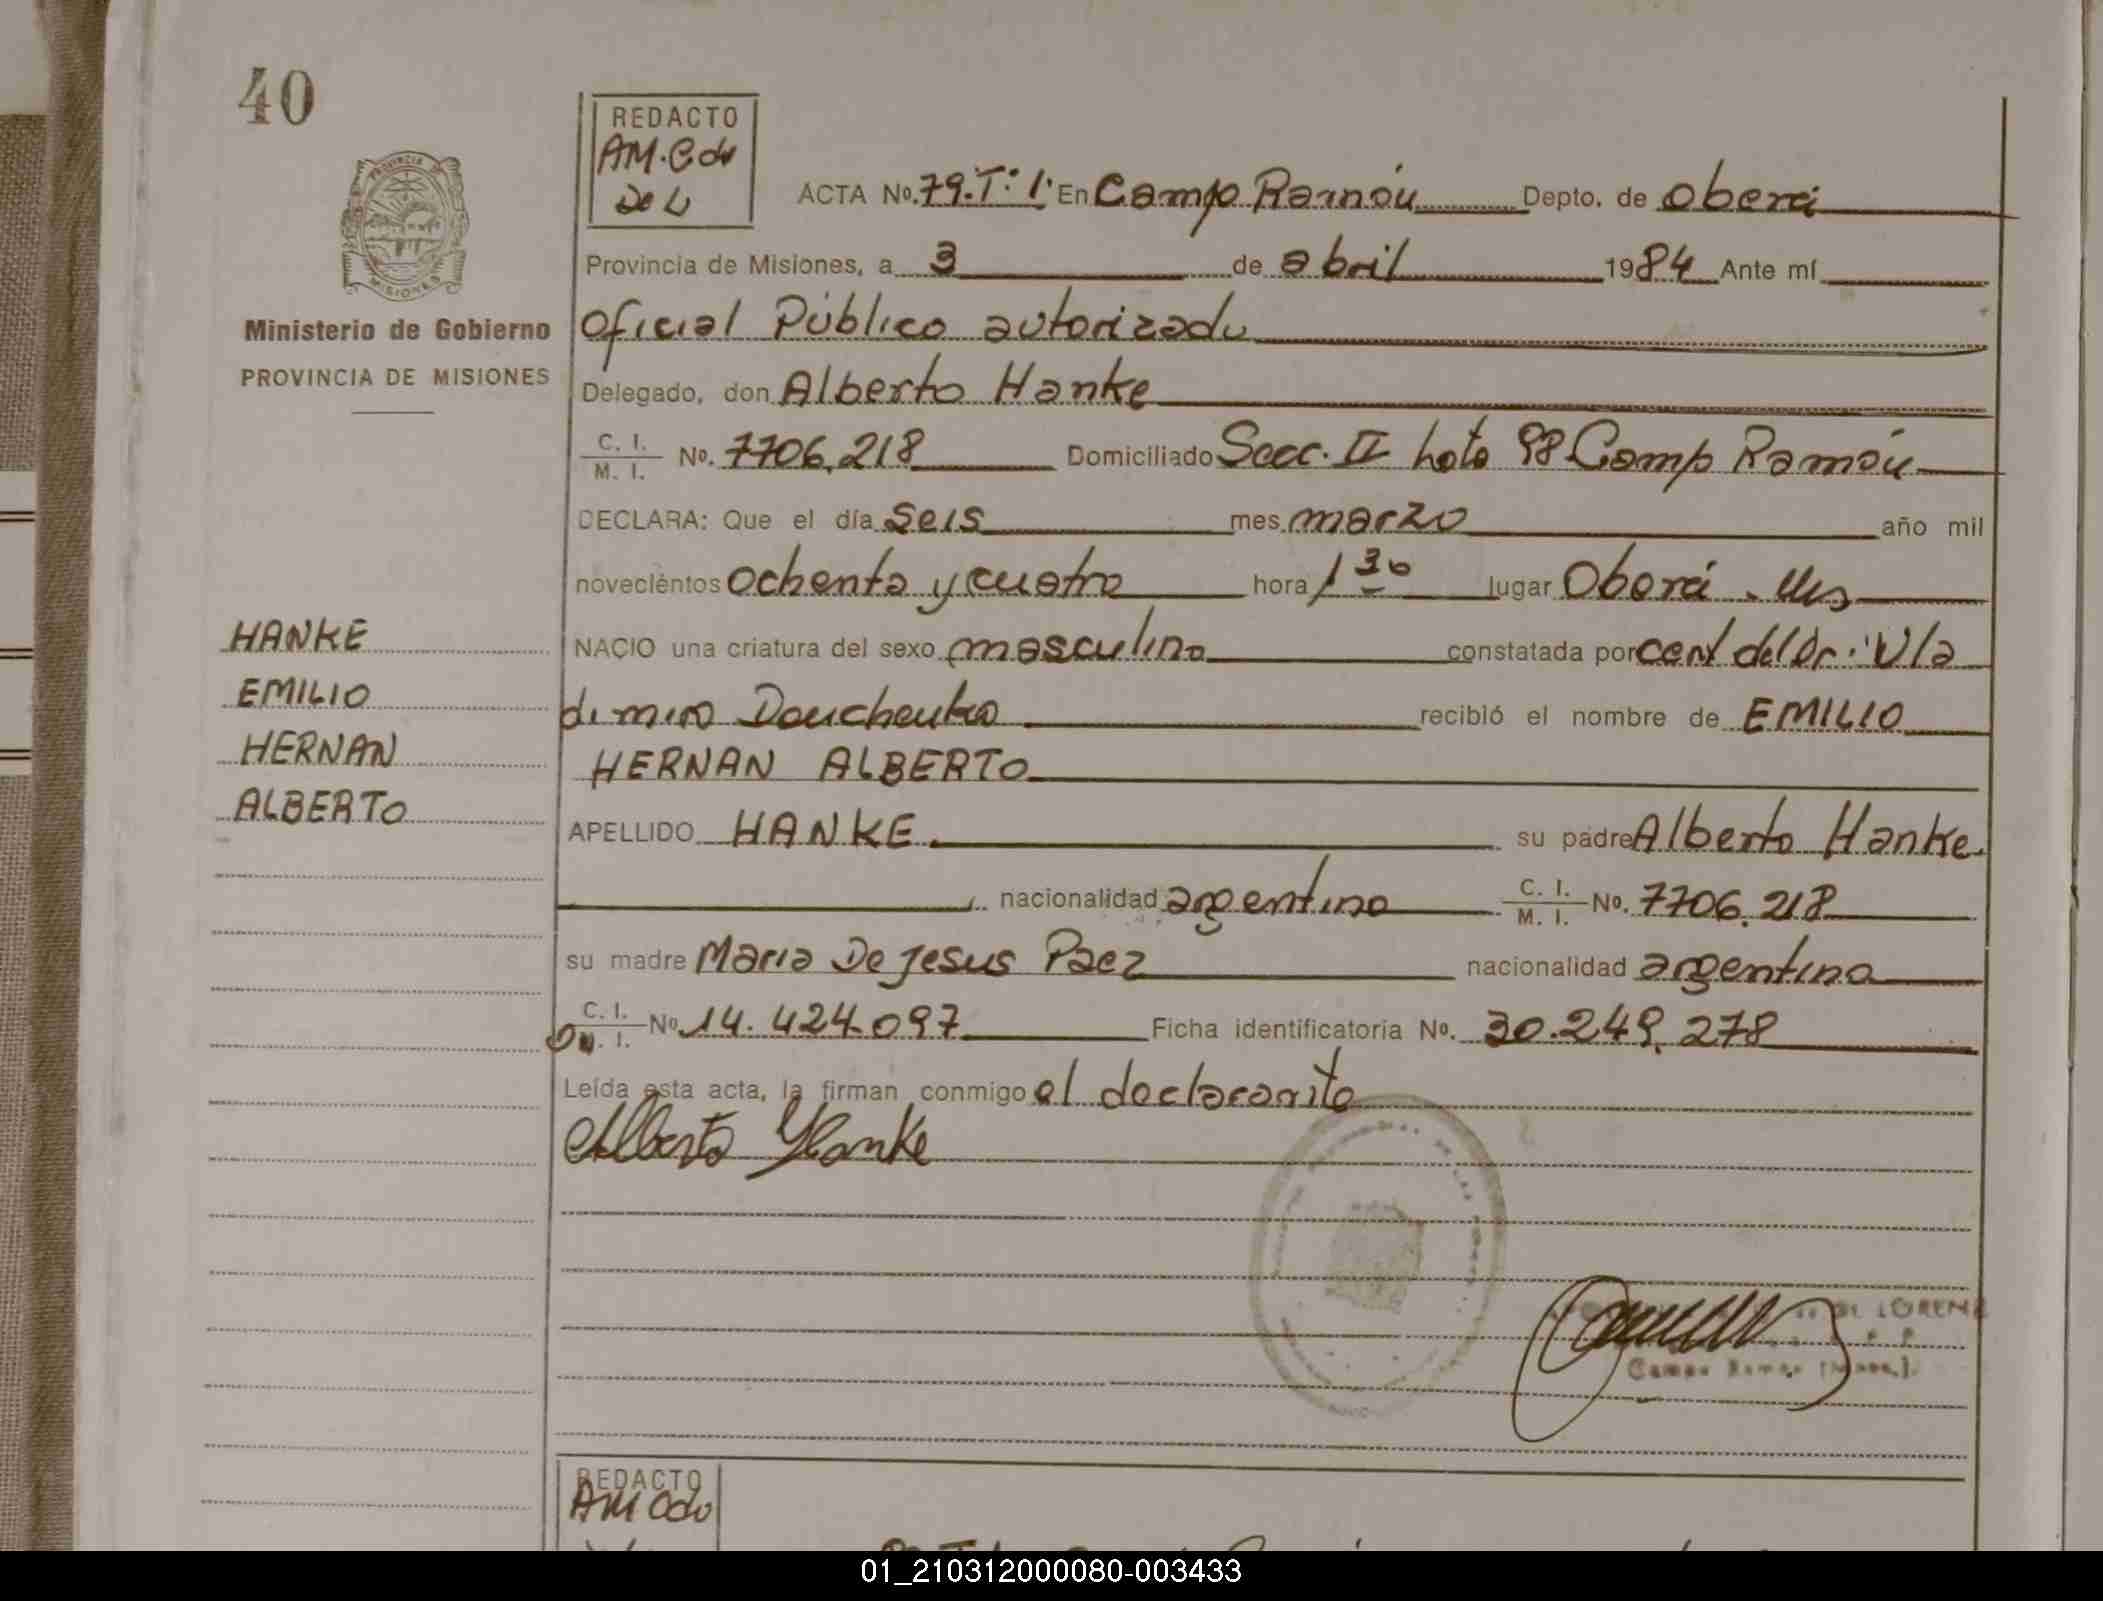 40
REDACTO
AM. Cdo
De L
ACTA No. 79. T: 1: En Campo Ramón Depto. de Oberá
Provincia de Misiones, a 3 de abril 1984 Ante mí
Ministerio de Gobierno
PROVINCIA DE MISIONES
Oficial Público autorizado
Delegado, don Alberto Hanke
C. I.
M. I. No. 7706.218 Domiciliado Secc. II Lote 98 Campo Ramón
DECLARA: Que el día seis mes marzo año mil
noveciéntos ochenta y cuatro hora 1 30 lugar Oberá. Mns
NACIO una criatura del sexo masculino constatada por cert del Dr. Vla
dimiro Douchenko recibió el nombre de EMILIO
HERNAN ALBERTO
APELLIDO HANKE. su padre Alberto Hanke.
nacionalidad argentino C. I.
M. I. No. 7706.218
su madre Maria De Jesus Paez nacionalidad argentina
C. I.
DN. I. No 14.424.097 Ficha identificatoria No. 30.249.278
Leída esta acta, la firman conmigo el declarante
Alberto Hanke
HANKE
EMILIO
HERNAN
ALBERTO
DE LORENZ
Campo Ramon
REDACTO
AM Cdo
01_210312000080-003433